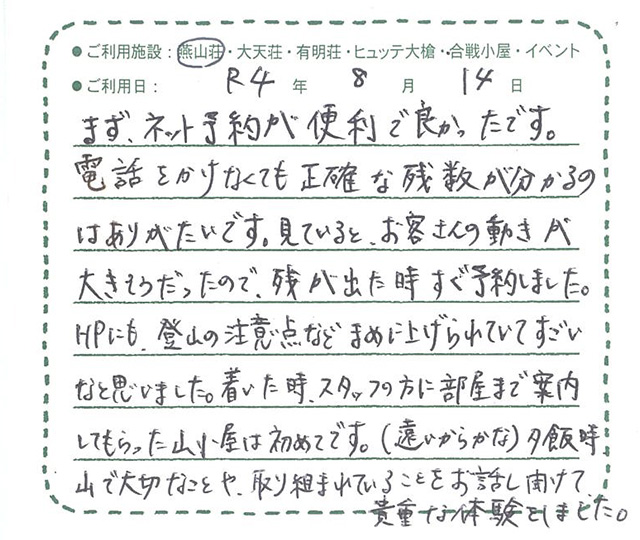 ●ご利用施設：燕山荘・大天荘・有明荘・ヒュッテ大槍・合戦小屋・イベント
●ご利用日： R4 年 8 月 14 日
まず、ネット予約が便利で良かったです。
電話をかけなくても正確な残数が分かるの
はありがたいです。見ていると、お客さんの動きが
大きそうだったので、残が出た時すぐ予約しました。
HPにも、登山の注意点などまめに上げられていてすごい
なと思いました。着いた時、スタッフの方に部屋まで案内
してもらった山小屋は初めてです。(遠いからかな)夕飯時
山で大切なことや、取り組まれていることをお話し聞けて、
貴重な体験をしました。